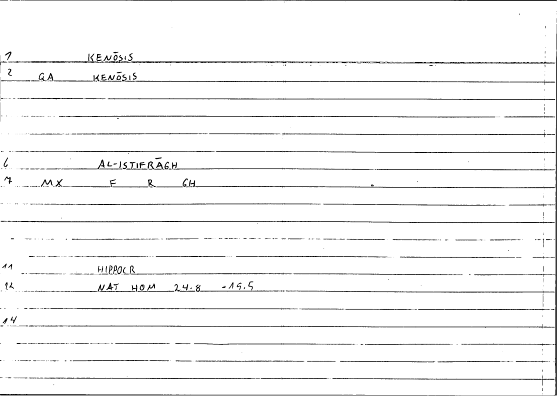 1 KENŌSIS
2 GA KENŌSIS
6 AL-ISTIFRĀGH
7 MX F R GH
11 HIPPOCR
12 NAT HOM 24.8 -15.5
14